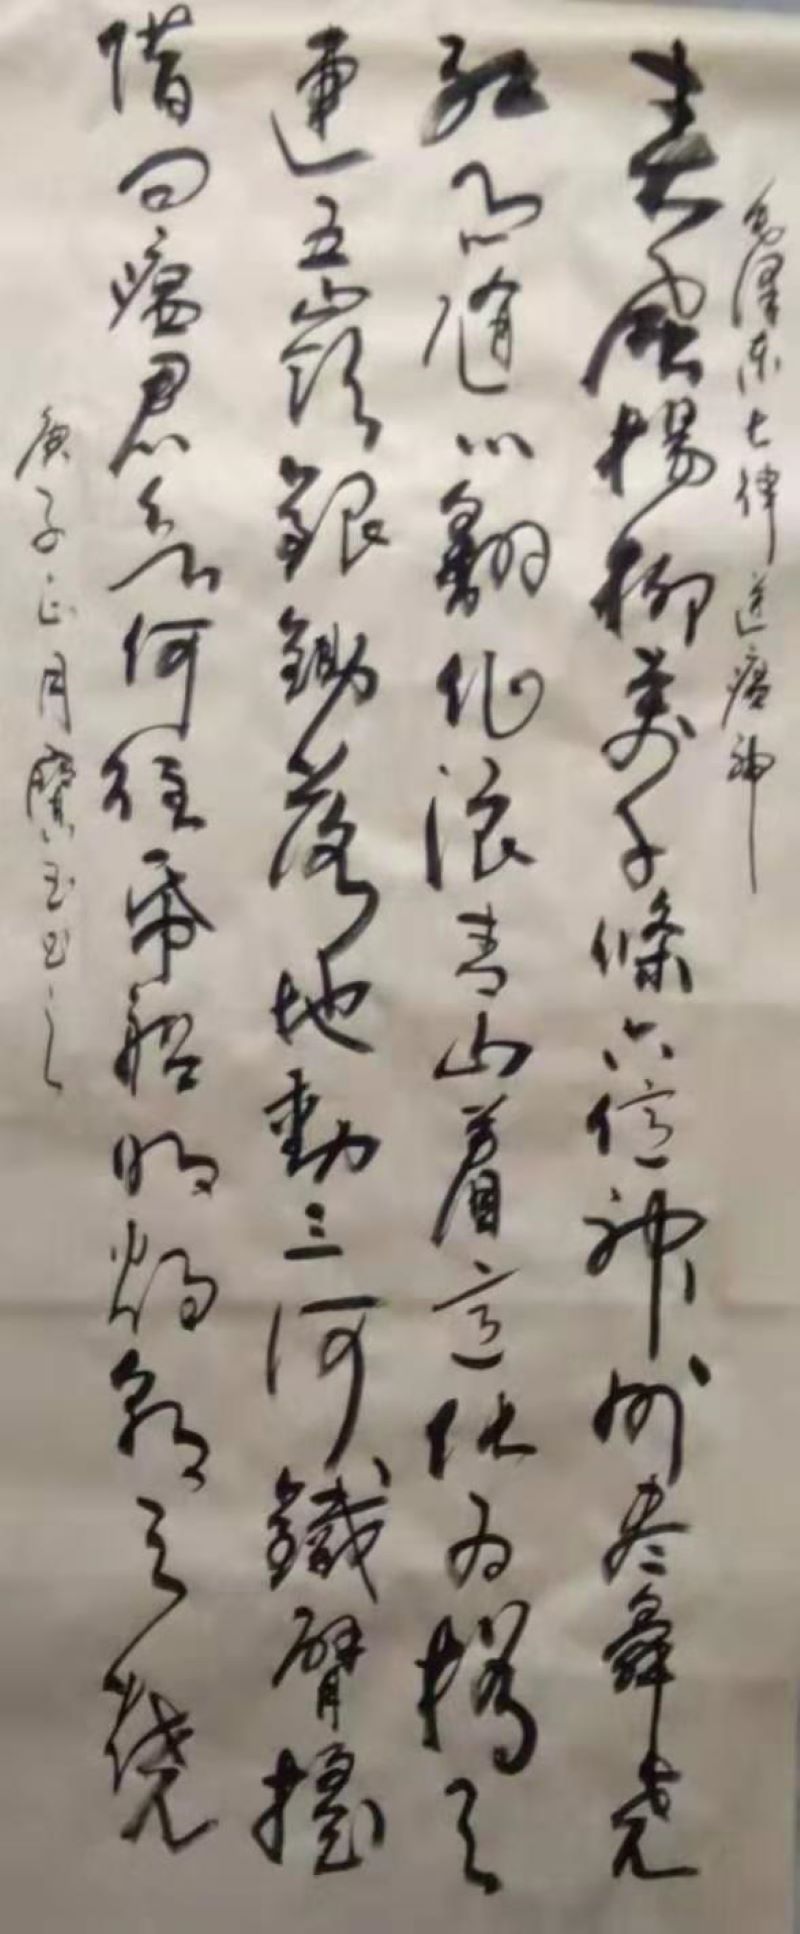 毛澤东七律送瘟神
春风楊柳萬千條六億神州尽舜尧
红雨随心翻作浪青山着意化为橋天
連五嶺銀鋤落地動三河鐵臂摇
借问瘟君欲何往帋船明烛照天燒
庚子正月寳玉书之